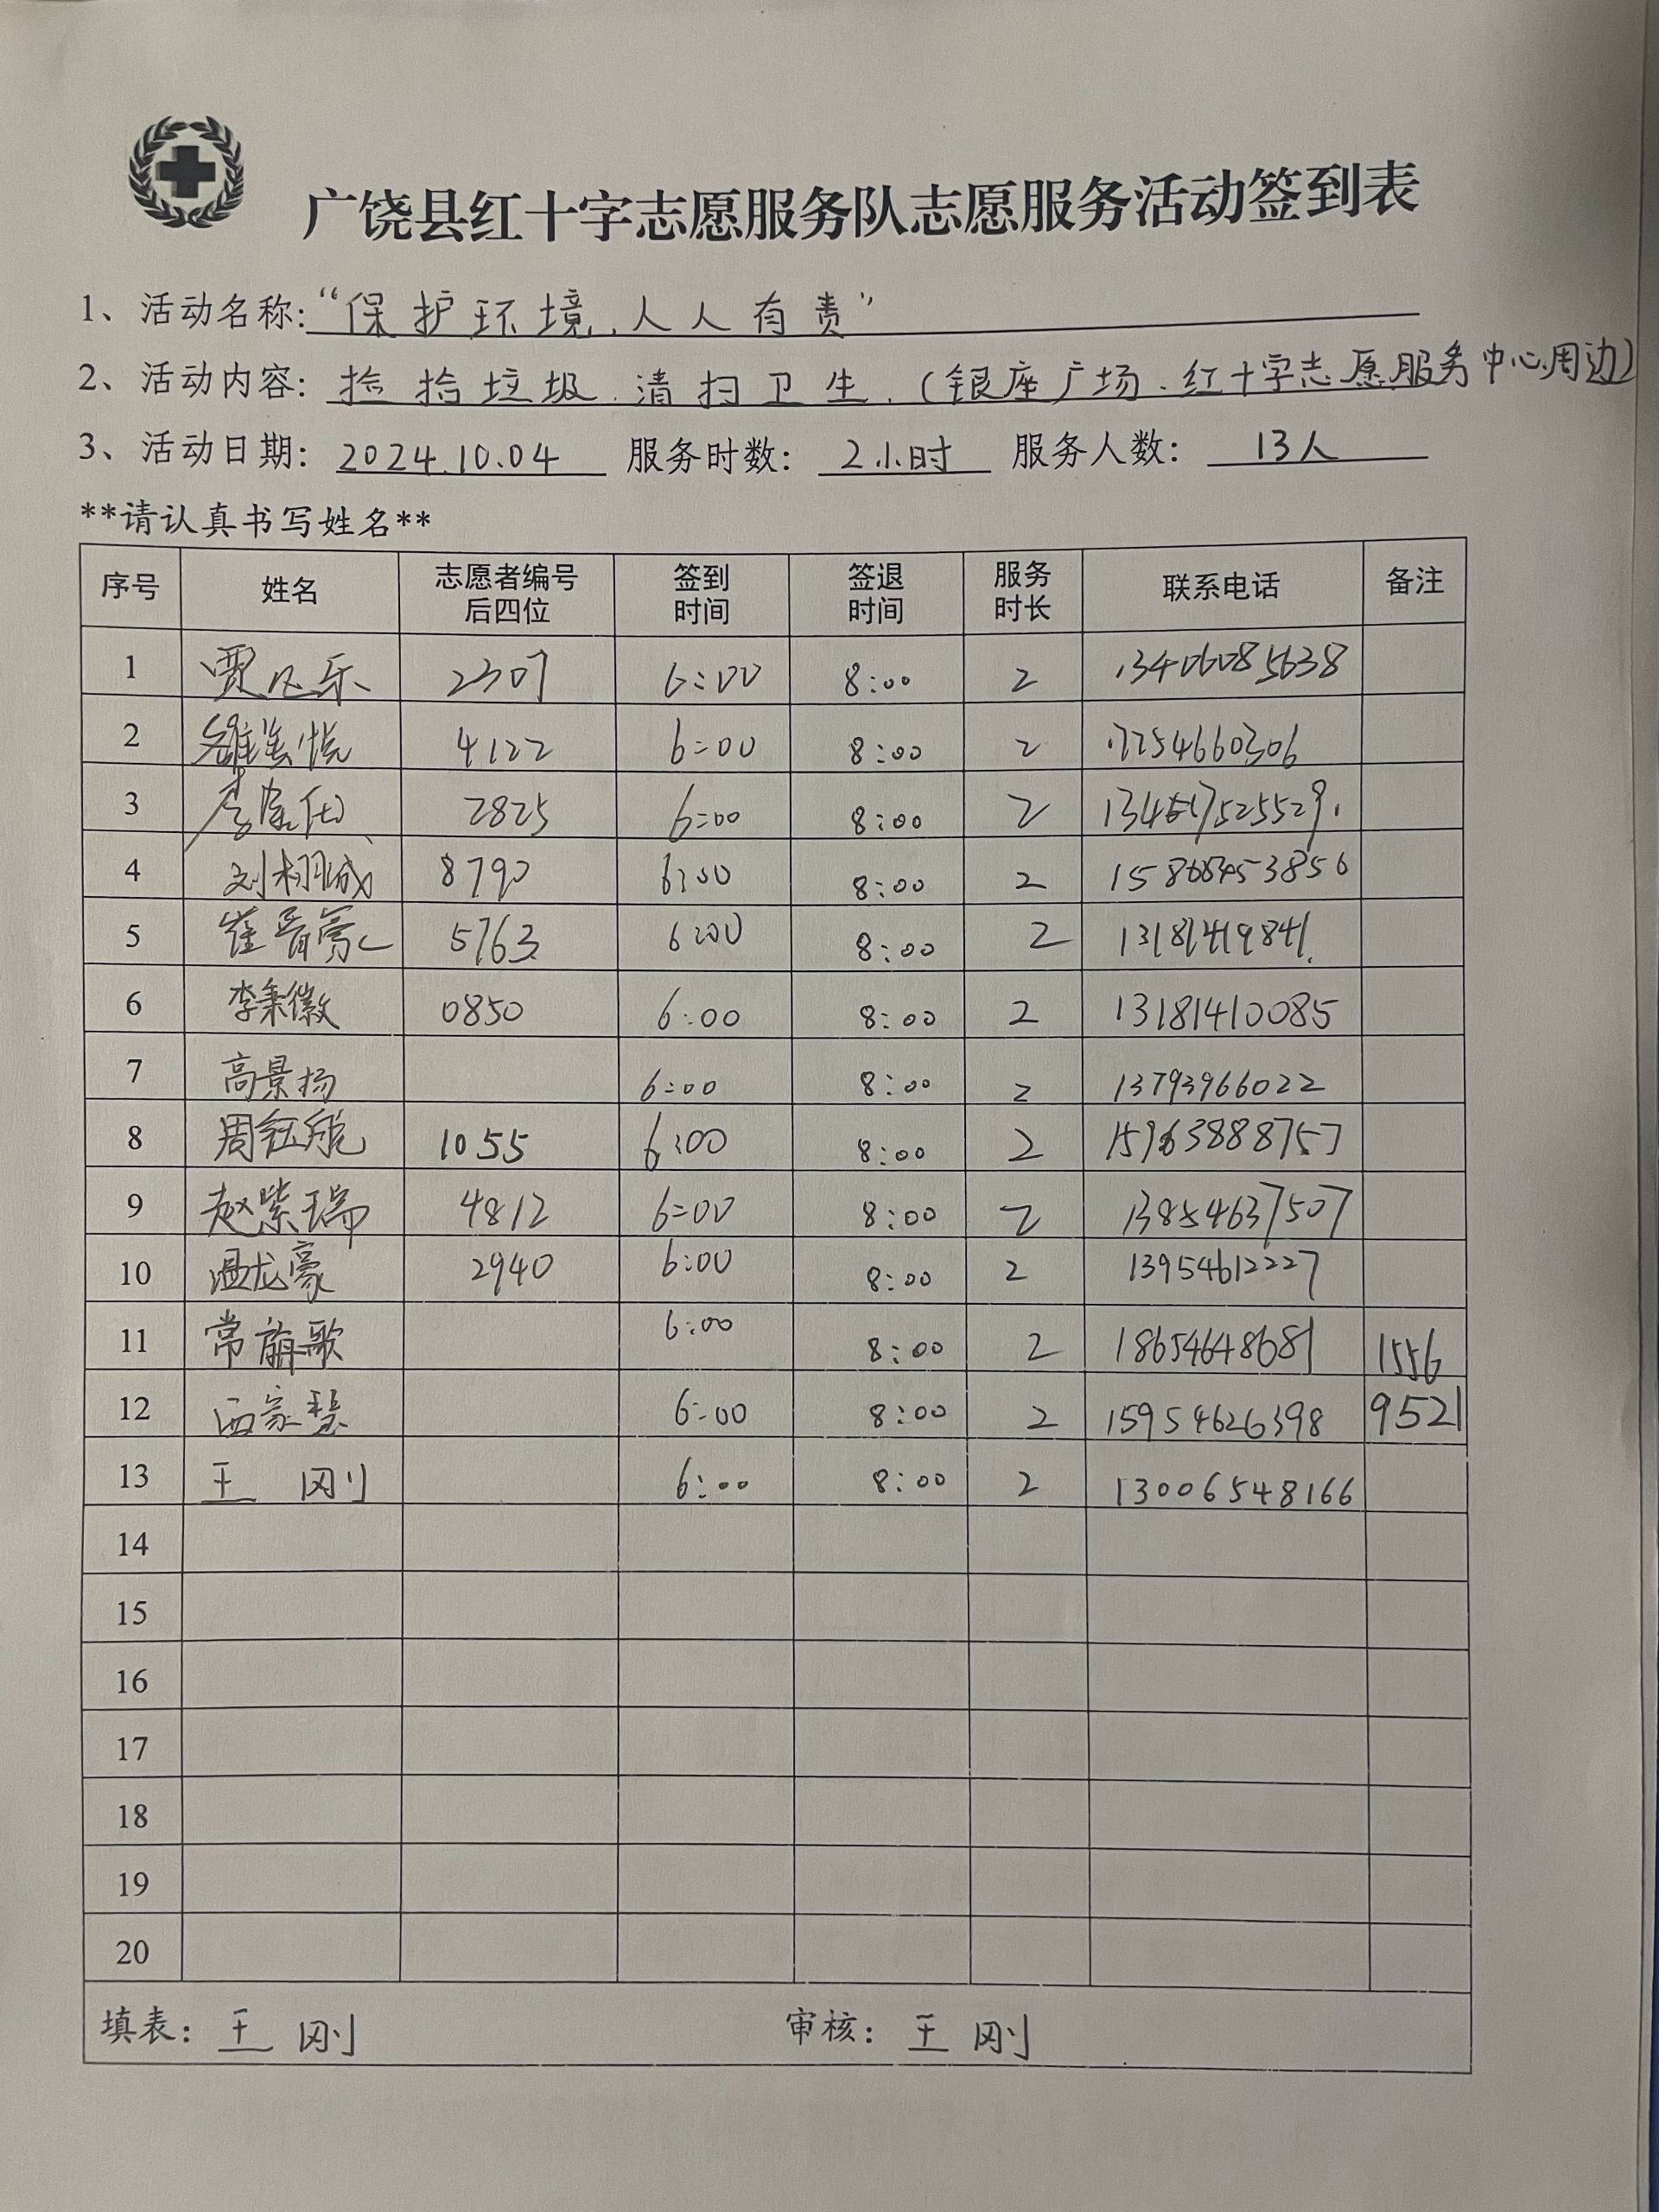 广饶县红十字志愿服务队志愿服务活动签到表
1、活动名称:“保护环境、人人有责”
2、活动内容: 捡拾垃圾、清扫卫生、(银座广场、红十字志愿服务中心周边)
3、活动日期: 2024.10.04 服务时数: 2小时 服务人数: 13人
**请认真书写姓名**
序号 姓名 志愿者编号后四位 签到时间 签退时间 服务时长 联系电话 备注
1 贾凡乐 2307 6:00 8:00 2 13406085638
2 4122 6:00 8:00 2 17254660306
3 2825 6:00 8:00 2
4 刘栩诚 8790 6:00 8:00 2
5 5763 6:00 8:00 2 13181419841
6 李秉徽 0850 6:00 8:00 2 13181410085
7 高景扬 6:00 8:00 2 13793966022
8 周钰航 1055 6:00 8:00 2 15963888757
9 赵紫瑞 4812 6:00 8:00 2 13854637507
10 温龙豪 2940 6:00 8:00 2 13954612227
11 常萌歌 6:00 8:00 2 18654648681 1556
12 西家慧 6:00 8:00 2 15954626398 9521
13 王 刚 6:00 8:00 2 13006548166
14
15
16
17
18
19
20
填表: 王 刚 审核: 王 刚